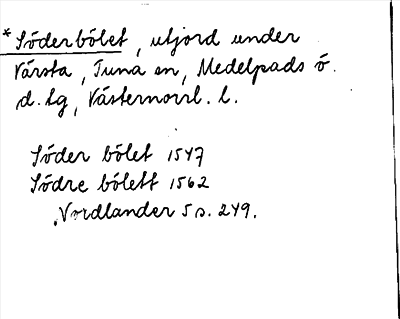 *Söderbölet, utjord under
Värsta, Tuna sn, Medelpads ö.
d. tg, Västernorrl. l.
Söder bölet 1547
Södre bölett 1562
Nordlander 5 s. 249.